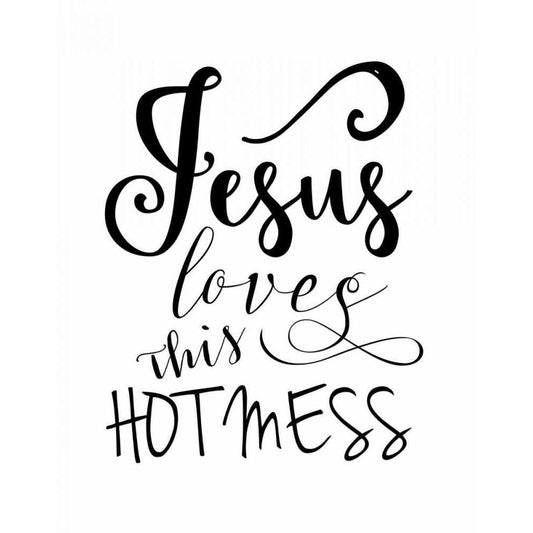 Jesus
loves
this
HOT MESS